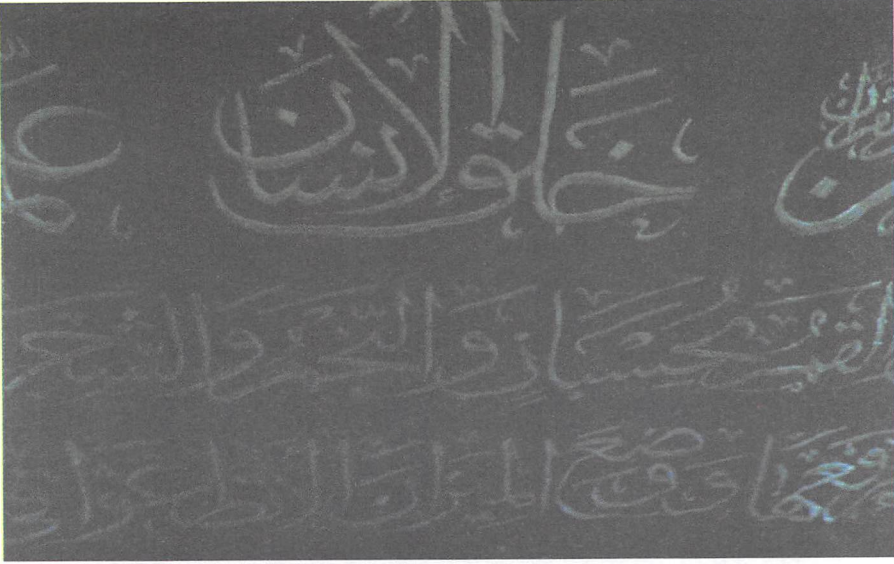 القرآن خلق الانسان
القمر بحسبان والنجم والشجر
رفعها ووضع الميزان الا تطغوا